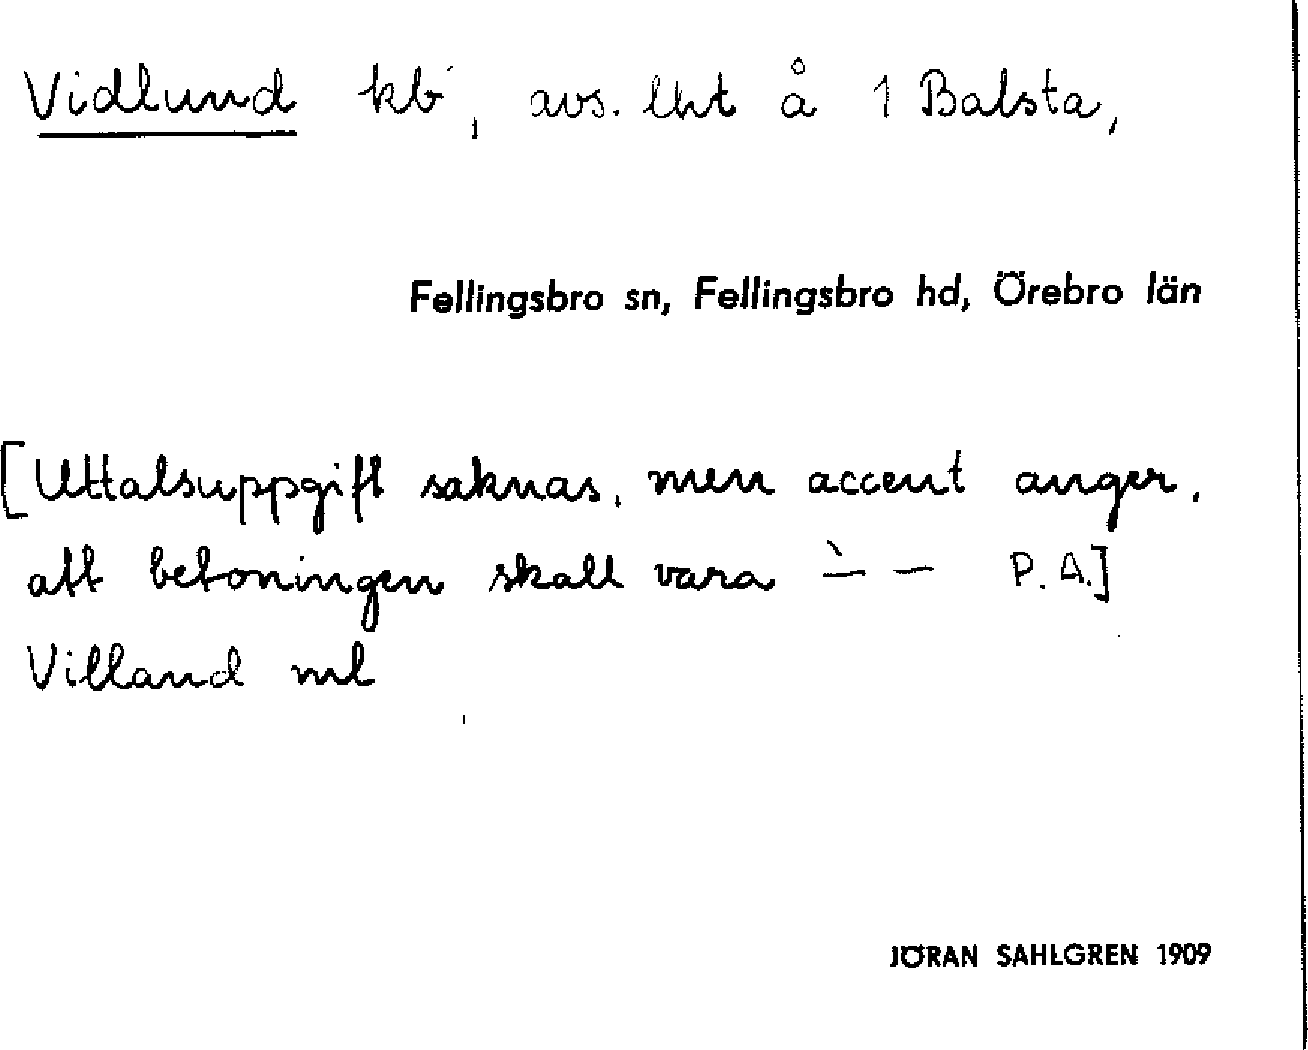 Vidlund kb, avs. lht å 1 Balsta,
Fellingsbro sn, Fellingsbro hd, Örebro län
[Uttalsuppgift saknas, men accent anger,
att betoningen skall vara ̀— — P.A.]
Villand ml
JÖRAN SAHLGREN 1909